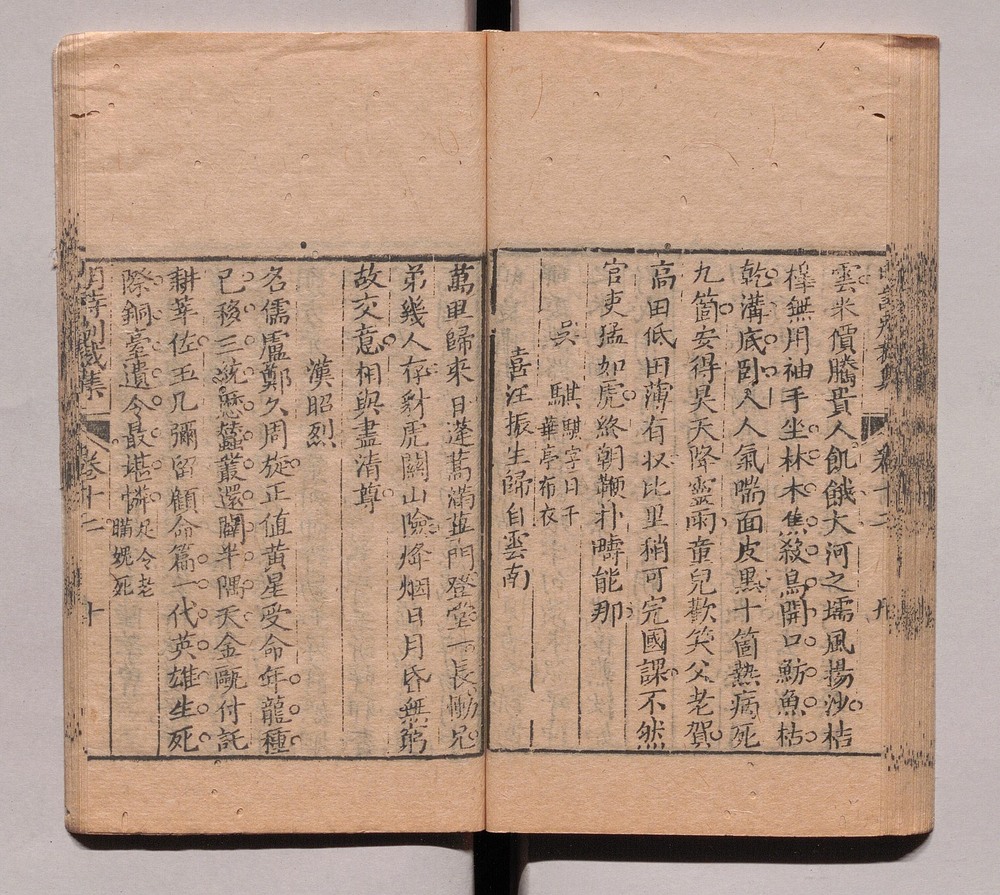 雲米價騰貴人飢餓大河之壖風揚沙桔
槹無用袖手坐林木焦殺鳥開口魴魚枯
乾溝底臥人人氣喘面皮黑十箇熱病死
九箇安得昊天降靈雨童兒歡笑父老賀
高田低田薄有收比里稍可完國課不然
官吏猛如虎終朝鞭朴疇能那
吳騏騏字日千
華亭布衣
喜汪振生歸自雲南
萬里歸來日蓬蒿滿蓽門登堂一長慟兄
弟幾人存豺虎關山險烽烟日月昏無窮
故交意相與盡清尊
漢昭烈
名儒盧鄭久周旋正值黃星受命年龍種
已移三統歷蠶叢還闢半隅天金甌付託
耕莘佐玉几彌留顧命篇一代英雄生死
際銅臺遺令最堪憐足令老
瞞媿死
明詩別裁集 卷十二 十